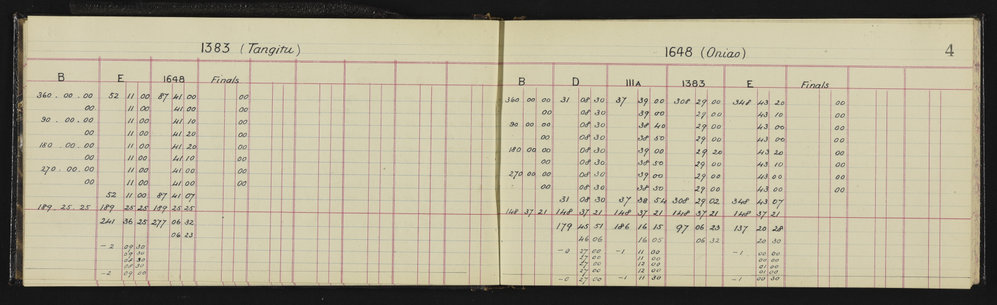 1383 (Tangitu)
B E 1648 Finals
360 . 00 . 00 52 11 00 87 41 00 00
00 11 00 41 00 00
90 . 00 . 00 11 00 41 10 00
00 11 00 41 20 00
180 . 00 . 00 11 00 41 20 00
00 11 00 41 10 00
270 . 00 . 00 11 00 41 00 00
00 11 00 41 00 00
52 11 00 87 41 07
189 . 25 . 25 189 25 25 189 25 25
241 36 25 277 06 32
06 23
-2 09 30
09 30
08 30
08 30
-2 09 00
1648 (Oniao) 4
B D IIIA 1383 E Finals
360 00 00 31 08 30 37 39 00 308 29 00 348 43 20 00
00 08 30 39 00 29 00 43 10 00
90 00 00 08 30 38 40 29 00 43 00 00
00 08 30 38 50 29 00 43 00 00
180 00 00 08 30 39 00 29 20 43 20 00
00 08 30 38 50 29 00 43 10 00
270 00 00 08 30 39 00 29 00 43 00 00
00 08 30 38 50 29 00 43 00 00
31 08 30 37 38 54 308 29 02 348 43 07
148 37 21 148 37 21 148 37 21 148 37 21 148 37 21
179 45 51 186 16 15 97 06 23 137 20 28
46 06 16 05 06 32 20 30
-0 27 00 -1 11 00 -1 00 00
27 00 11 00 00 00
27 00 12 00 01 00
27 00 12 00 01 00
-0 27 00 -1 11 30 -1 00 30